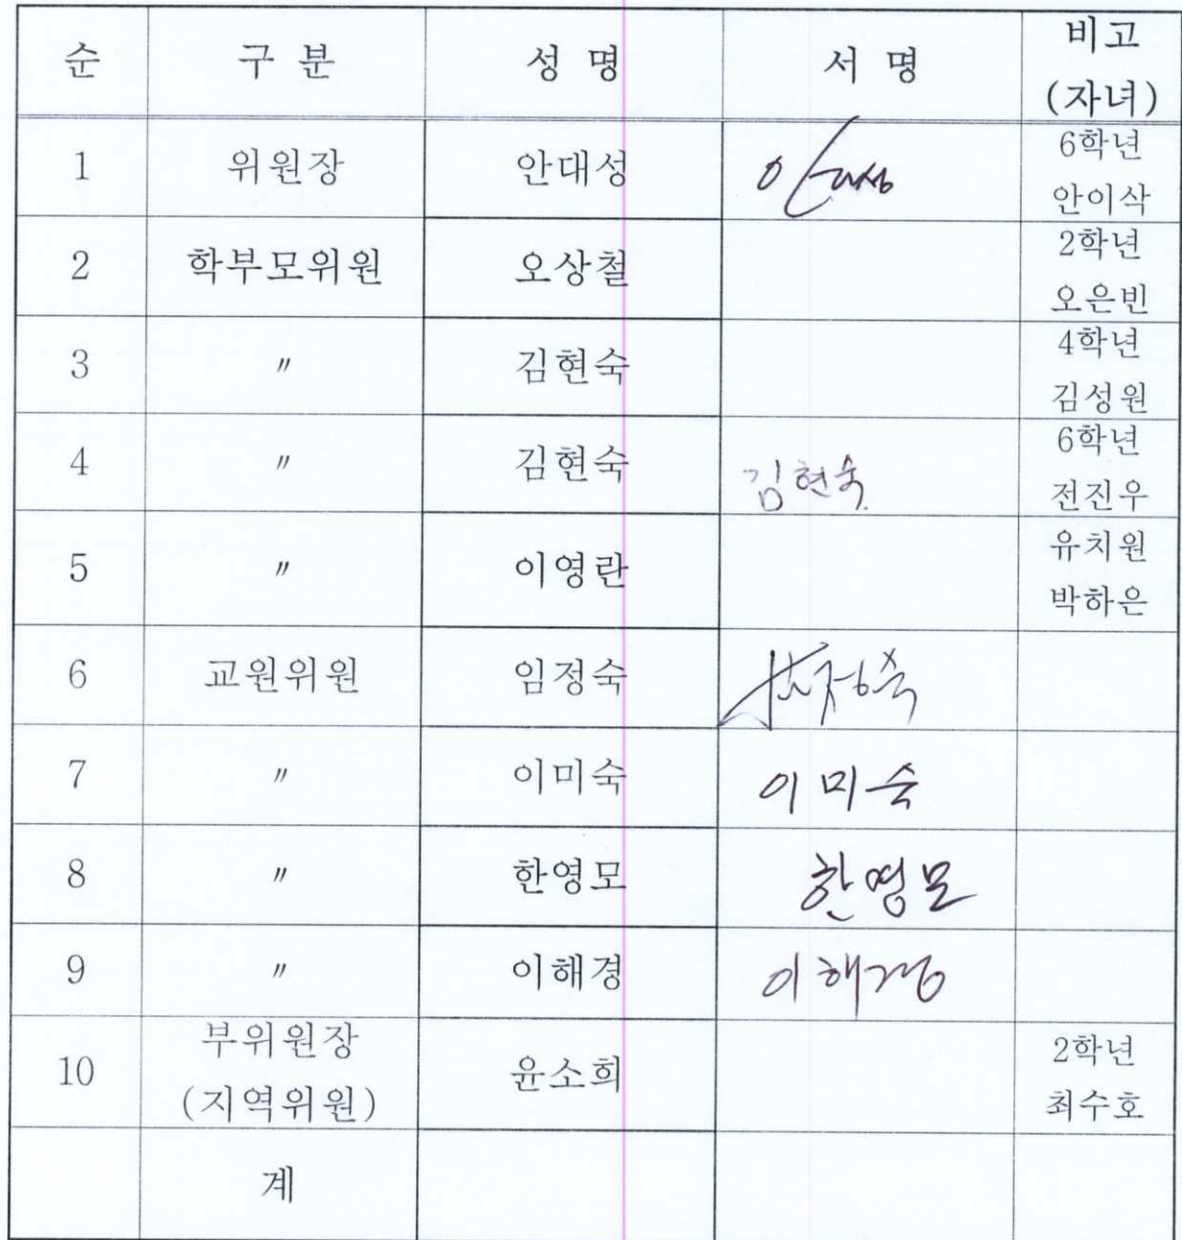 순 구 분 성 명 서 명 비고
(자녀)
1 위원장 안대성 안대성 6학년
안이삭
2 학부모위원 오상철 2학년
오은빈
3 〃 김현숙 4학년
김성원
4 〃 김현숙 김현숙 6학년
전진우
5 〃 이영란 유치원
박하은
6 교원위원 임정숙 임정숙
7 〃 이미숙 이미숙
8 〃 한영모 한영모
9 〃 이해경 이해경
10 부위원장 윤소희 2학년
(지역위원) 최수호
계